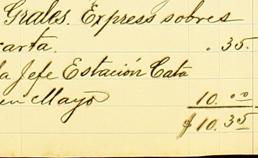 Grales. Express sobres
carta. . 35.
la Jefe Estación Cata
en Mayo 10. 00
$ 10. 35